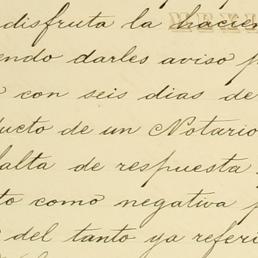 disfruta la hacien
endo darles aviso p
con seis dias de
ucto de un Notario
falta de respuesta
to como negativa p
del tanto ya referi